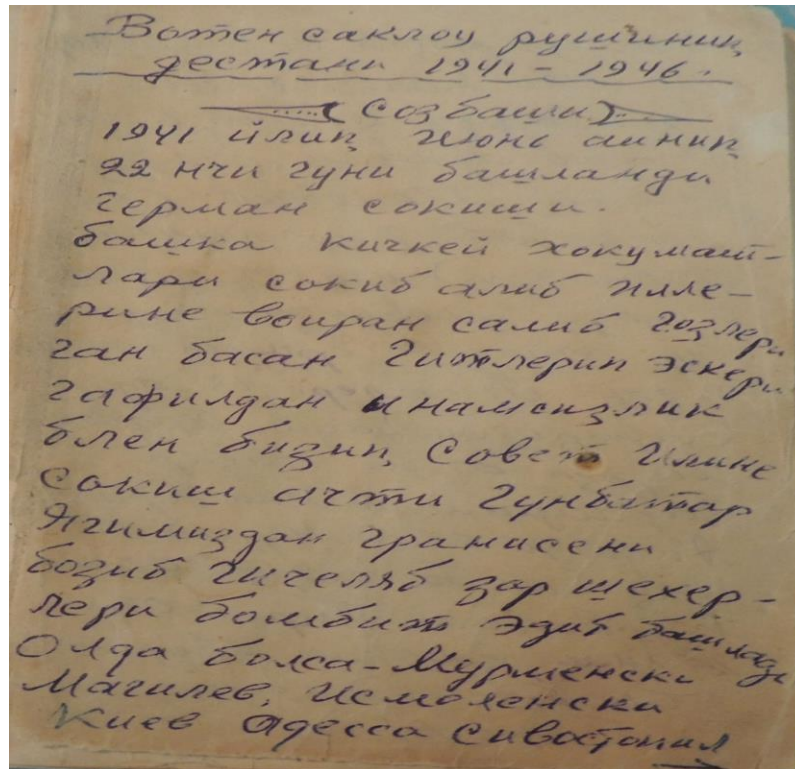 Вотен саклоу рушиниң
дестани 1941 – 1946.
Созбаши
1941 йлиң июнь аиниң
22 нчи гуни башланди
герман сокиши.
башка кичкей хокумат-
лари сокиб алиб илле-
рине вoиран салиб гозлери
ган басан Гитлериң эскери
гафилдан инамсизлик
блен бизиң Совет илине
сокиш ачти гунбатар
ягимиздан гранисени
бозиб гичеляб зор шехер-
лери бомбит эдиб башлади
Олда болса-Мурменски
Магилев, Исмоленски
Киев Адесса Сивастопил